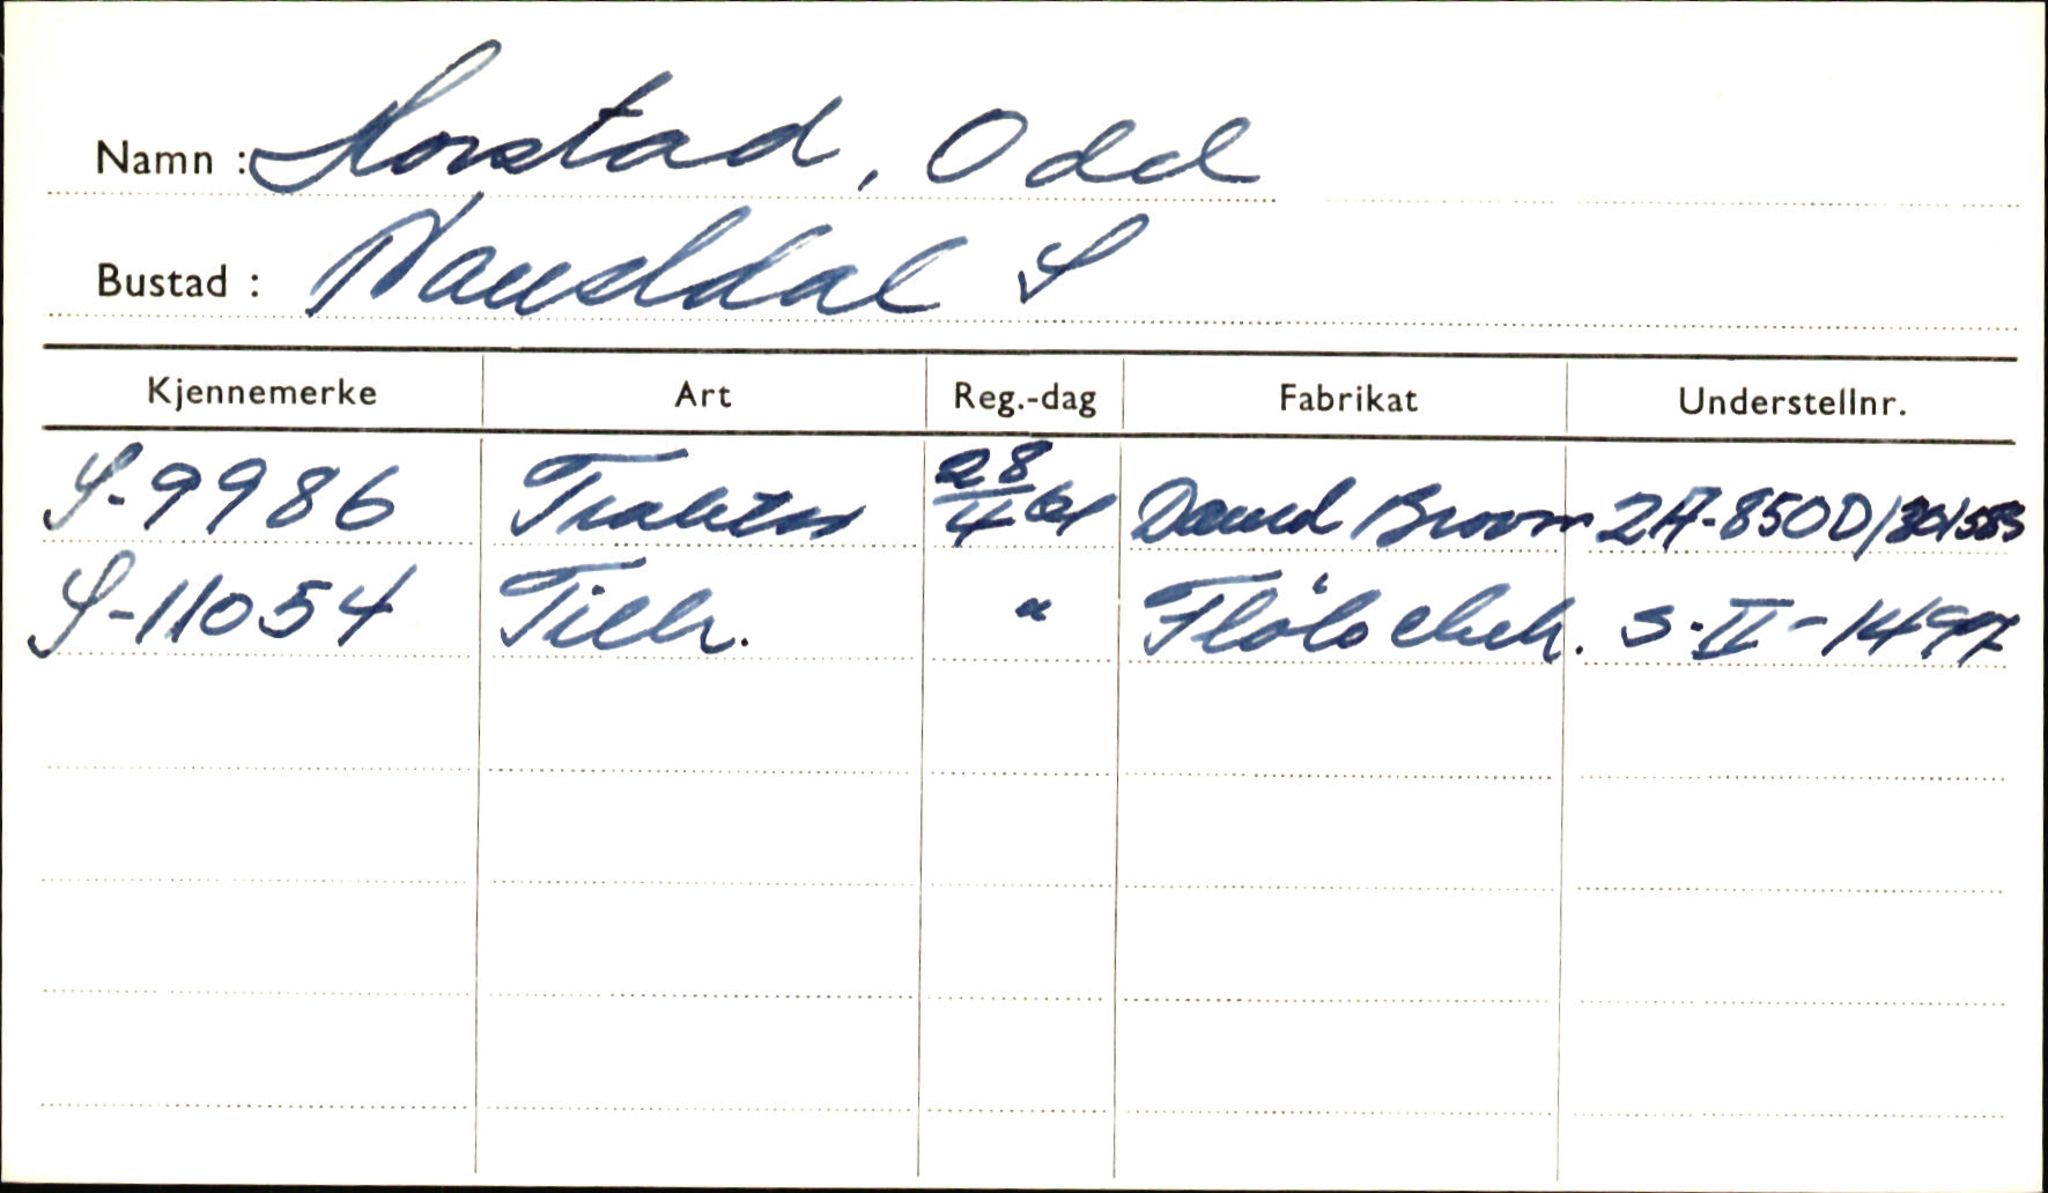 Namn : Horstad, Odd
Bustad : Naustdal S
Kjennemerke Art Reg.-dag Fabrikat Understellnr.
S-9986 Traktor 28/4 61 David Brown 2A-850D/301553
S-11054 Tilh. " S-II-1497